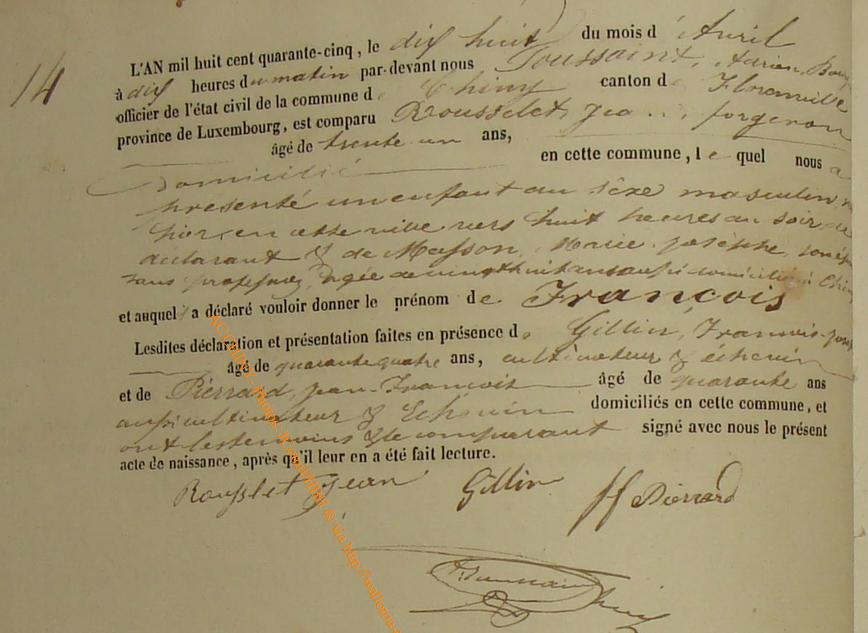 14
L'AN mil huit cent quarante-cinq, le dix huit du mois d'Avril
à dix heures du matin par-devant nous Toussaint, Adrien,
officier de l'état civil de la commune de Chiny canton de Florenville
province de Luxembourg, est comparu Rousselet, Jean, forgeron
âgé de trente un ans,
Domicilié en cette commune, lequel nous a
présenté un enfant du sèxe masculin, né
hier, en cette ville vers huit heures du soir, de
déclarant & de Masson, Marie Josèphe, son épouse
sans profession, âgée de vingt huit ans aussi domiciliée à Chiny
et auquel il a déclaré vouloir donner le prénom de François
Lesdites déclaration et présentation faites en présence de Gillin, François-Joseph
âgé de quarante quatre ans, cultivateur & échevin
et de Piérrard, Jean-François âgé de quarante ans
aussi cultivateur & Echevin domiciliés en cette commune, et
ont les témoins & le comparant signé avec nous le présent
acte de naissance, après qu'il leur en a été fait lecture.
Rousslet Jean Gillin JF Pierrard
Toussaint